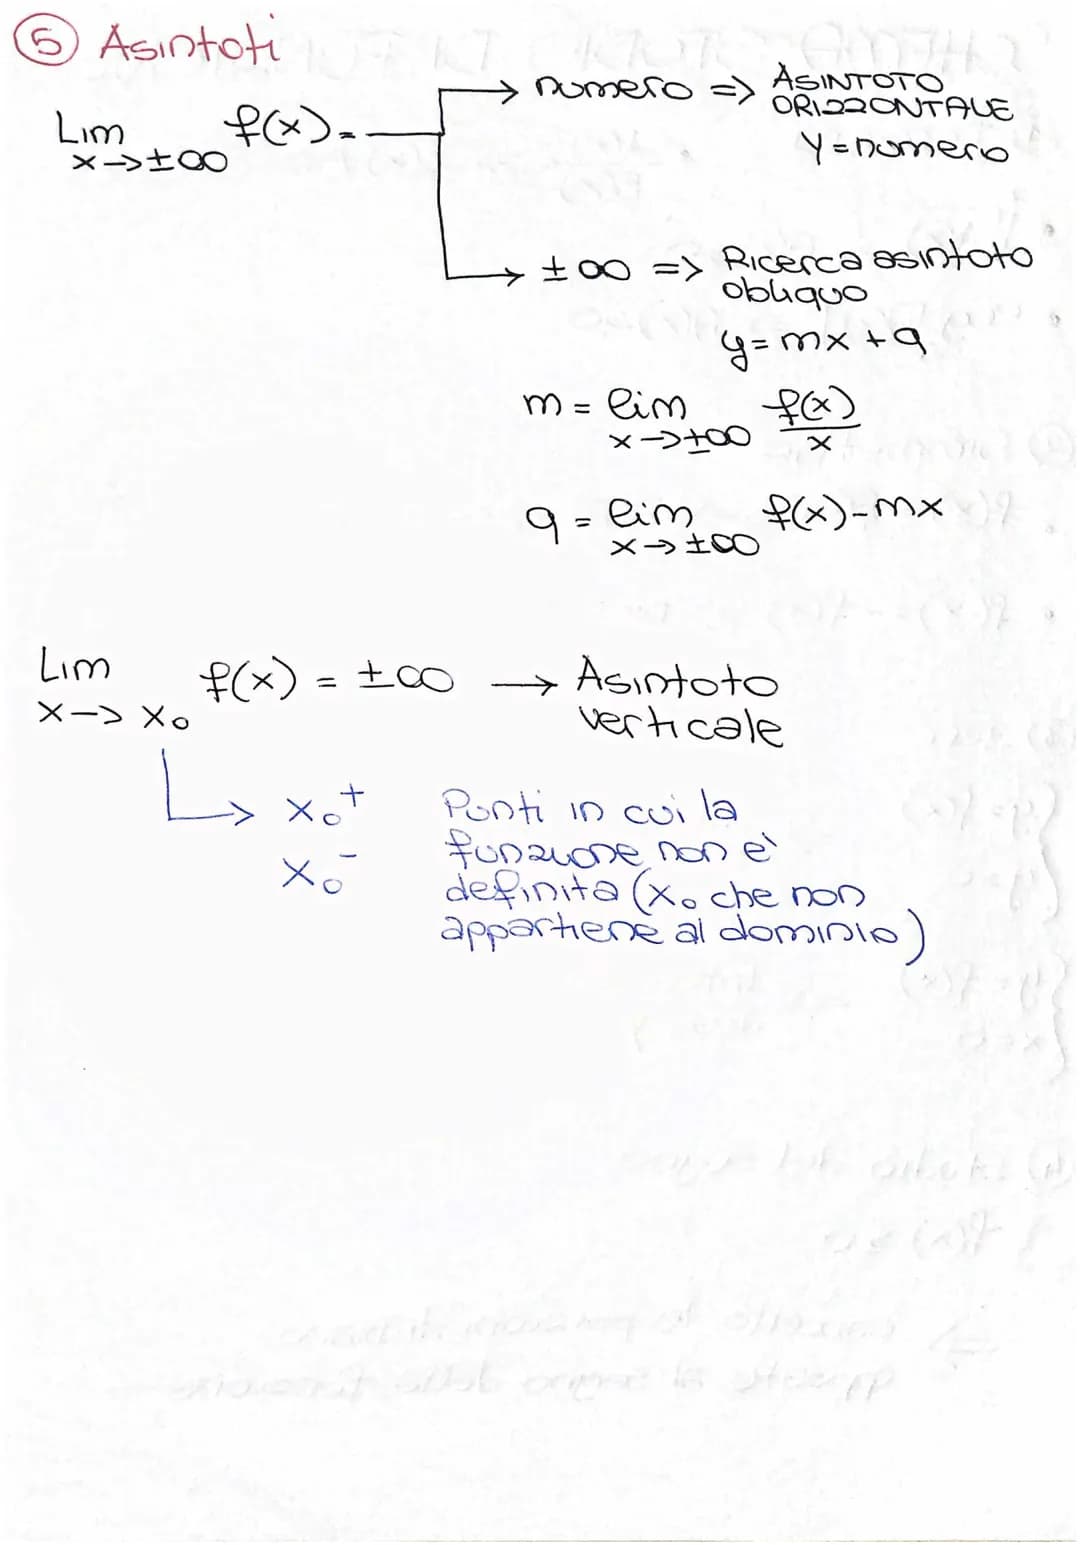 ⑤ Asintoti
Lim f(x) =
x→±∞
→ numero => ASINTOTO
ORIZZONTALE
y=numero
→ ±∞ => Ricerca asintoto
obliquo
y=mx+q
m = lim f(x)/x
x→±∞
q = lim f(x)-mx
x→±∞
Lim f(x) = ±∞ → Asintoto
x→x₀ verticale
↳ x₀⁺ Punti in cui la
funzione non è
x₀⁻ definita (x₀ che non
appartiene al dominio)